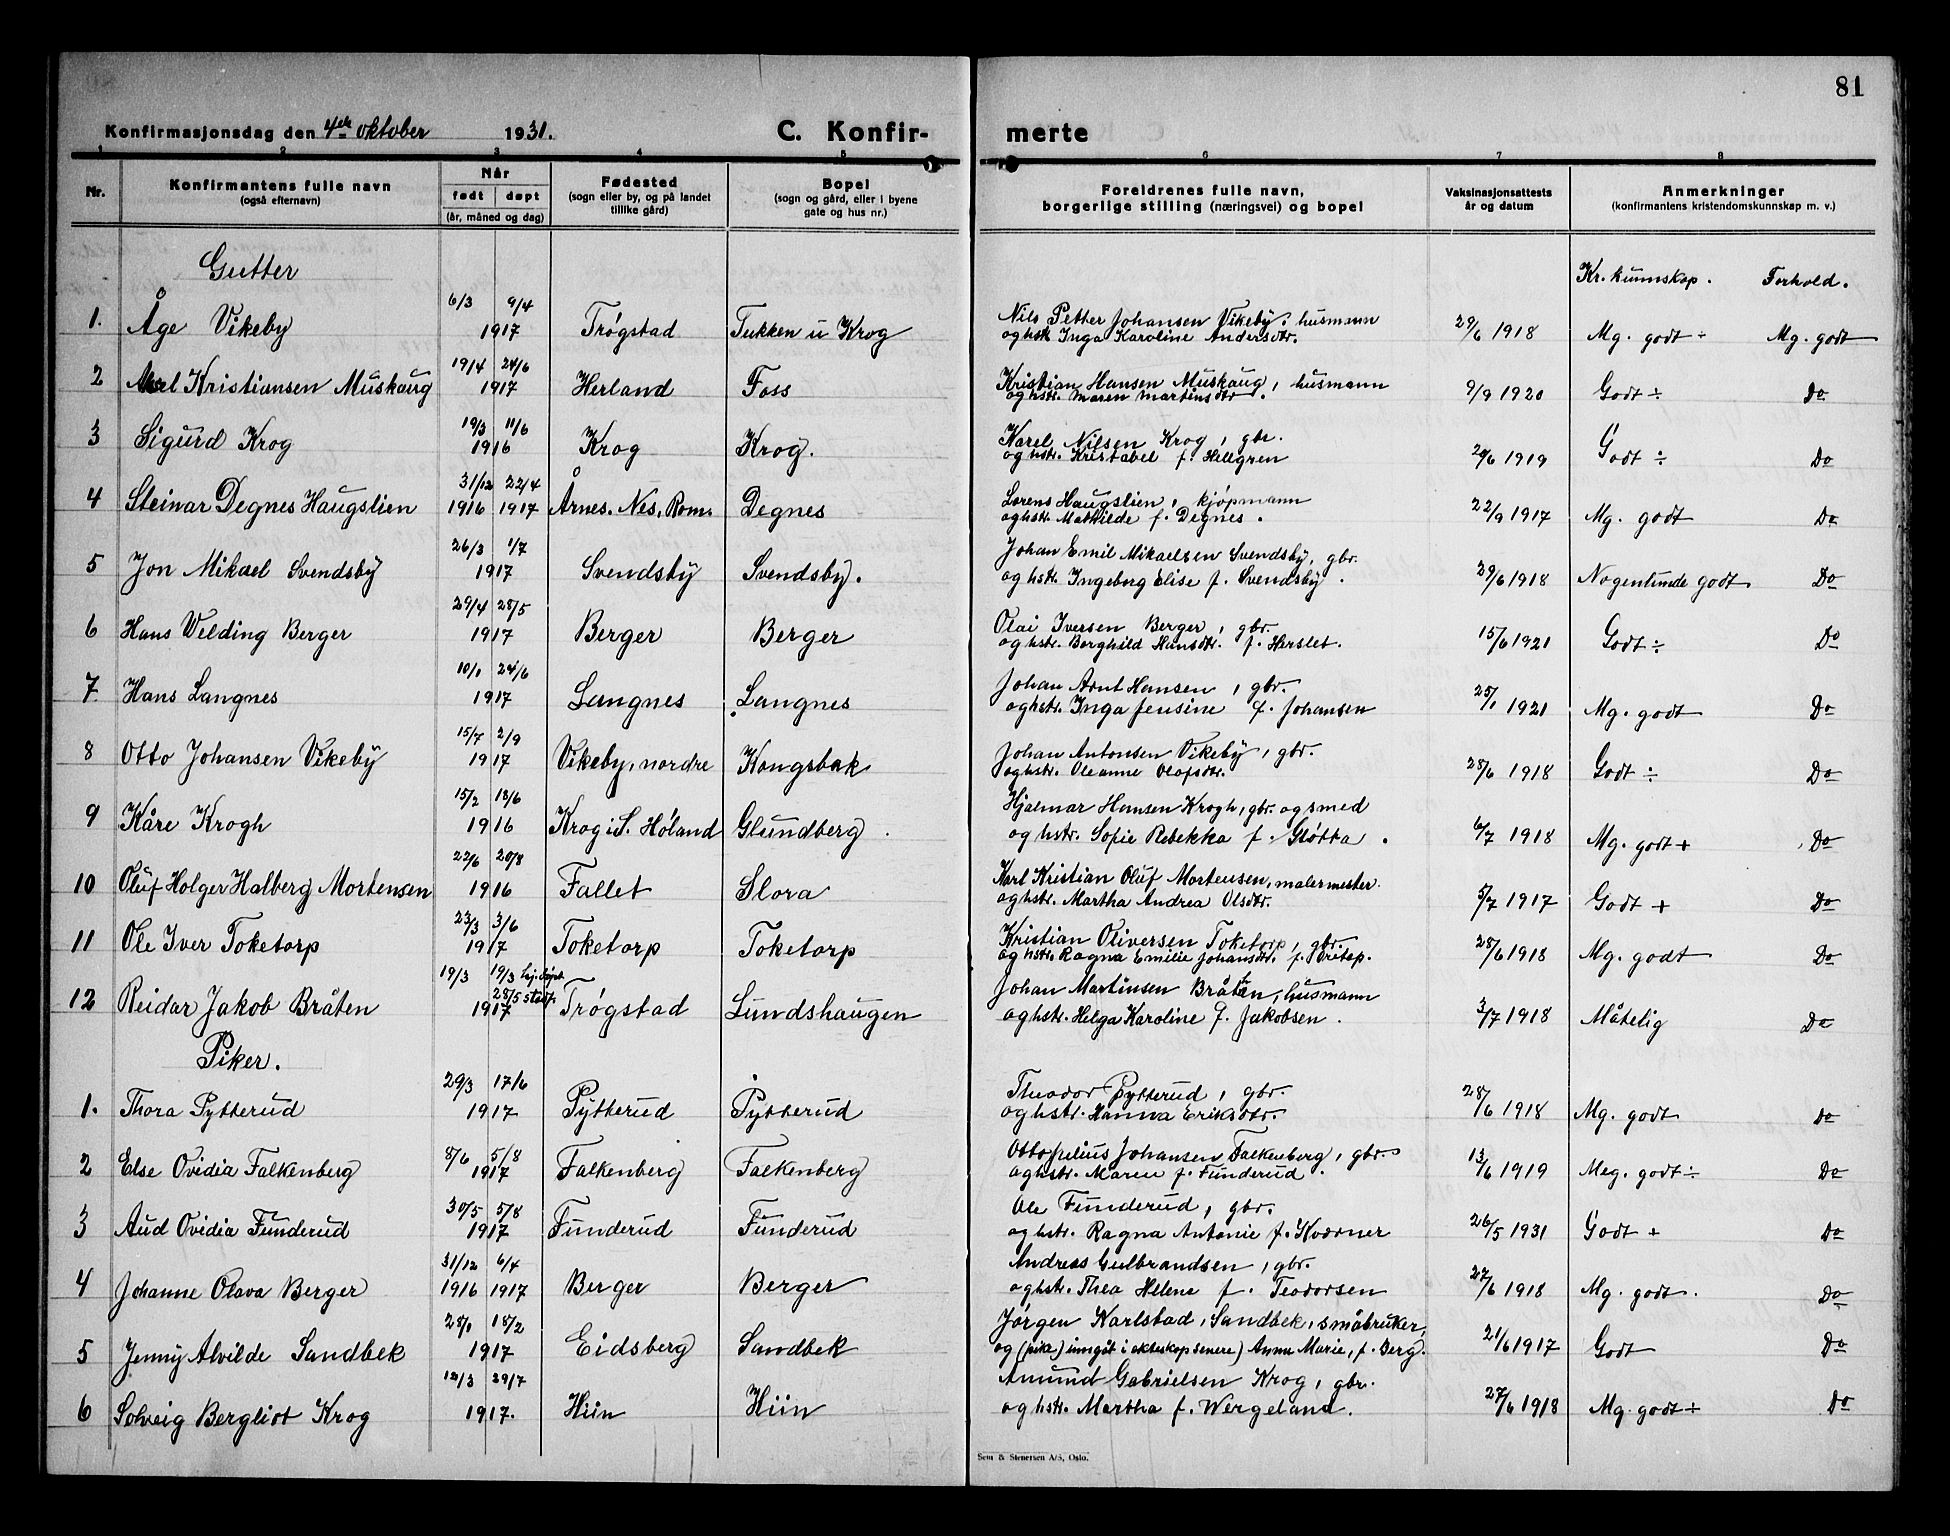 81
Konfirmasjonsdag den 4de oktober 1931. C. Konfir- merte
1 2 3 4 5 6 7 8
Nr. Konfirmantens fulle navn (også efternavn) Når født døpt (år, måned og dag) Fødested (sogn eller by, og på landet tillike gård) Bopel (sogn og gård, eller i byene gate og hus nr.) Foreldrenes fulle navn, borgerlige stilling (næringsvei) og bopel Vaksinasjonsattests år og datum Anmerkninger (konfirmantens kristendomskunnskap m. v.)
Gutter Kr. kunnskap. Forhold.
1. Åge Vikeby 6/3 9/4 1917 Trøgstad Tukken u Krog Nils Petter Johansen Vikeby, husmann
og hstr. Inga Karoline Andersdtr. 29/6 1918 Mg. godt ÷ Mg. godt
2 Kristiansen Muskaug 19/4 24/6 1917 Herland Foss Kristian Hansen Muskaug, husmann
og hstr. Maren Martinsdtr. 9/9 1920 Godt ÷ Do
3 Sigurd Krog 19/3 11/6 1916 Krog Krog. Karel Nilsen Krog, gbr.
og hstr. Kristabel f. Hellgren 29/6 1919 Godt ÷ Do
4 Steinar Degnes Haugslien 31/12 1916 22/4 1917 Årnes. Nes, Rom. Degnes Lorens Haugslien, kjøpmann
og hstr. Mathilde f. Degnes. 22/9 1917 Mg. godt Do
5 Jon Mikael Svendsby 26/3 1/7 1917 Svendsby Svendsby. Johan Emil Mikaelsen Svendsby, gbr.
og hstr. Ingeborg Elise f. Svendsby. 29/6 1918 Nogenlunde godt Do
6 Hans Velding Berger 29/4 28/5 1917 Berger Berger Olai Iversen Berger, gbr.
og hstr. Borghild Hansdtr. f. Herslet. 15/6 1921 Godt ÷ Do
7 Hans Langnes 10/1 24/6 1917 Langnes Langnes Johan Arnt Hansen, gbr.
og hstr. Inga Jensine f. Johansen 25/1 1921 Mg. godt Do
8 Otto Johansen Vikeby 15/7 2/9 1917 Vikeby, nordre Kongsbak Johan Antonsen Vikeby, gbr.
og hstr. Oleanne Olafsdtr. 28/6 1918 Godt ÷ Do
9 Kåre Krogh 15/2 18/6 1916 Krog i S. Høland Glundberg. Hjalmar Hansen Krogh, gbr. og smed
og hstr. Sofie Rebekka f. Gløtta. 6/7 1918 Mg. godt + Do
10 Oluf Holger Halberg Mortensen 22/6 20/8 1916 Fallet Slora Karl Kristian Oluf Mortensen, malermester.
og hstr. Martha Andrea Olsdtr. 5/7 1917 Godt + Do
11 Ole Iver Toketorp 23/3 3/6 1917 Toketorp Toketorp Kristian Oliversen Toketorp, gbr.
og hstr. Ragna Emilie Johansdtr. 28/6 1918 Mg. godt Do
12 Reidar Jakob Bråten 19/3 19/3 hj. døpt 28/5 stadf. 1917 Trøgstad Lundshaugen Johan Martinsen Bråten, husmann
og hstr. Helga Karoline f. Jakobsen. 3/7 1918 Måtelig Do
Piker.
1. Thora Pytterud 29/3 17/6 1917 Pytterud Pytterud Theodor Pytterud, gbr.
og hstr. Hanna Eriksdtr. 28/6 1918 Mg. godt Do
2 Else Ovidia Falkenberg 8/6 5/8 1917 Falkenberg Falkenberg Otto Julius Johansen Falkenberg, gbr.
og hstr. Maren f. Funderud. 13/6 1919 Meg. godt ÷ Do
3 Aud Ovidia Funderud 30/5 5/8 1917 Funderud Funderud Ole Funderud, gbr.
og hstr. Ragna Antonie f. Kværner 26/5 1931 Godt + Do
4 Johanne Olava Berger 31/12 1916 6/4 1917 Berger Berger Andreas Gulbrandsen, gbr.
og hstr. Thea Helene f. Teodorsen 27/6 1918 Mg. godt. Do
5 Jenny Alvilde Sandbek 28/1 18/2 1917 Eidsberg Sandbek Jørgen Karlstad, Sandbek, småbruker,
og (pike) inngåt i ekteskap senere) Anna Marie, f. Berg. 21/6 1917 Godt Do
6 Solveig Bergliot Krog 12/3 29/7 1917. Hiin Hiin Amund Gabrielsen Krog, gbr.
og hstr. Martha f. Wergeland. 27/6 1918 Mg. godt ÷ Do
Sem & Stenersen A/S, Oslo.